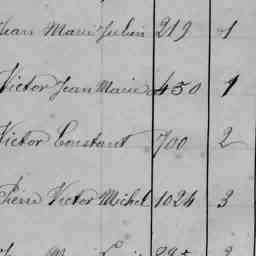 Jean Marie Julien 219 1
Victor Jean Marie 450 1
Victor Constant 700 2
Pierre Victor Michel 1024 3